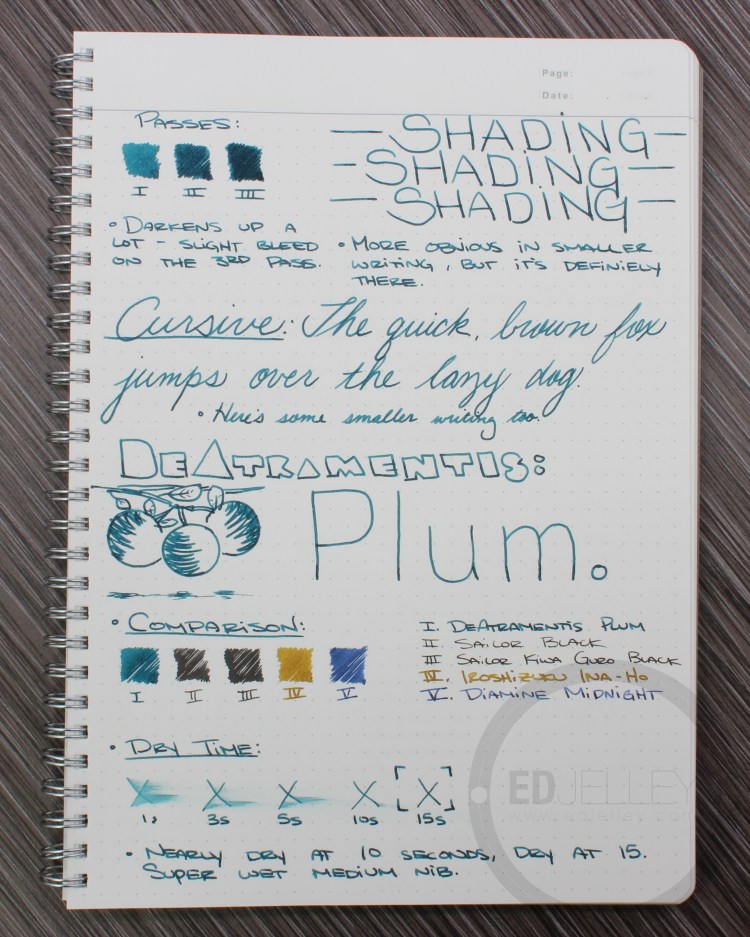 Page:
Date:
Passes:
I II III
• Darkens up a
lot - slight bleed
on the 3rd pass.
— Shading —
— Shading —
— Shading —
• More obvious in smaller
writing, but it's definiely
there.
Cursive: The quick, brown fox
jumps over the lazy dog.
• Here's some smaller writing too.
DeAtramentis:
Plum.
• Comparison:
I II III IV V
I. DeAtramentis Plum
II Sailor Black
III Sailor Kiwa Guro Black
IV. Iroshizuku Ina-Ho
V. Diamine Midnight
• Dry Time:
X X X X X
1s 3s 5s 10s 15s
• Nearly dry at 10 seconds, dry at 15.
Super wet medium nib.
EDJELLEY
www.edjelley.com